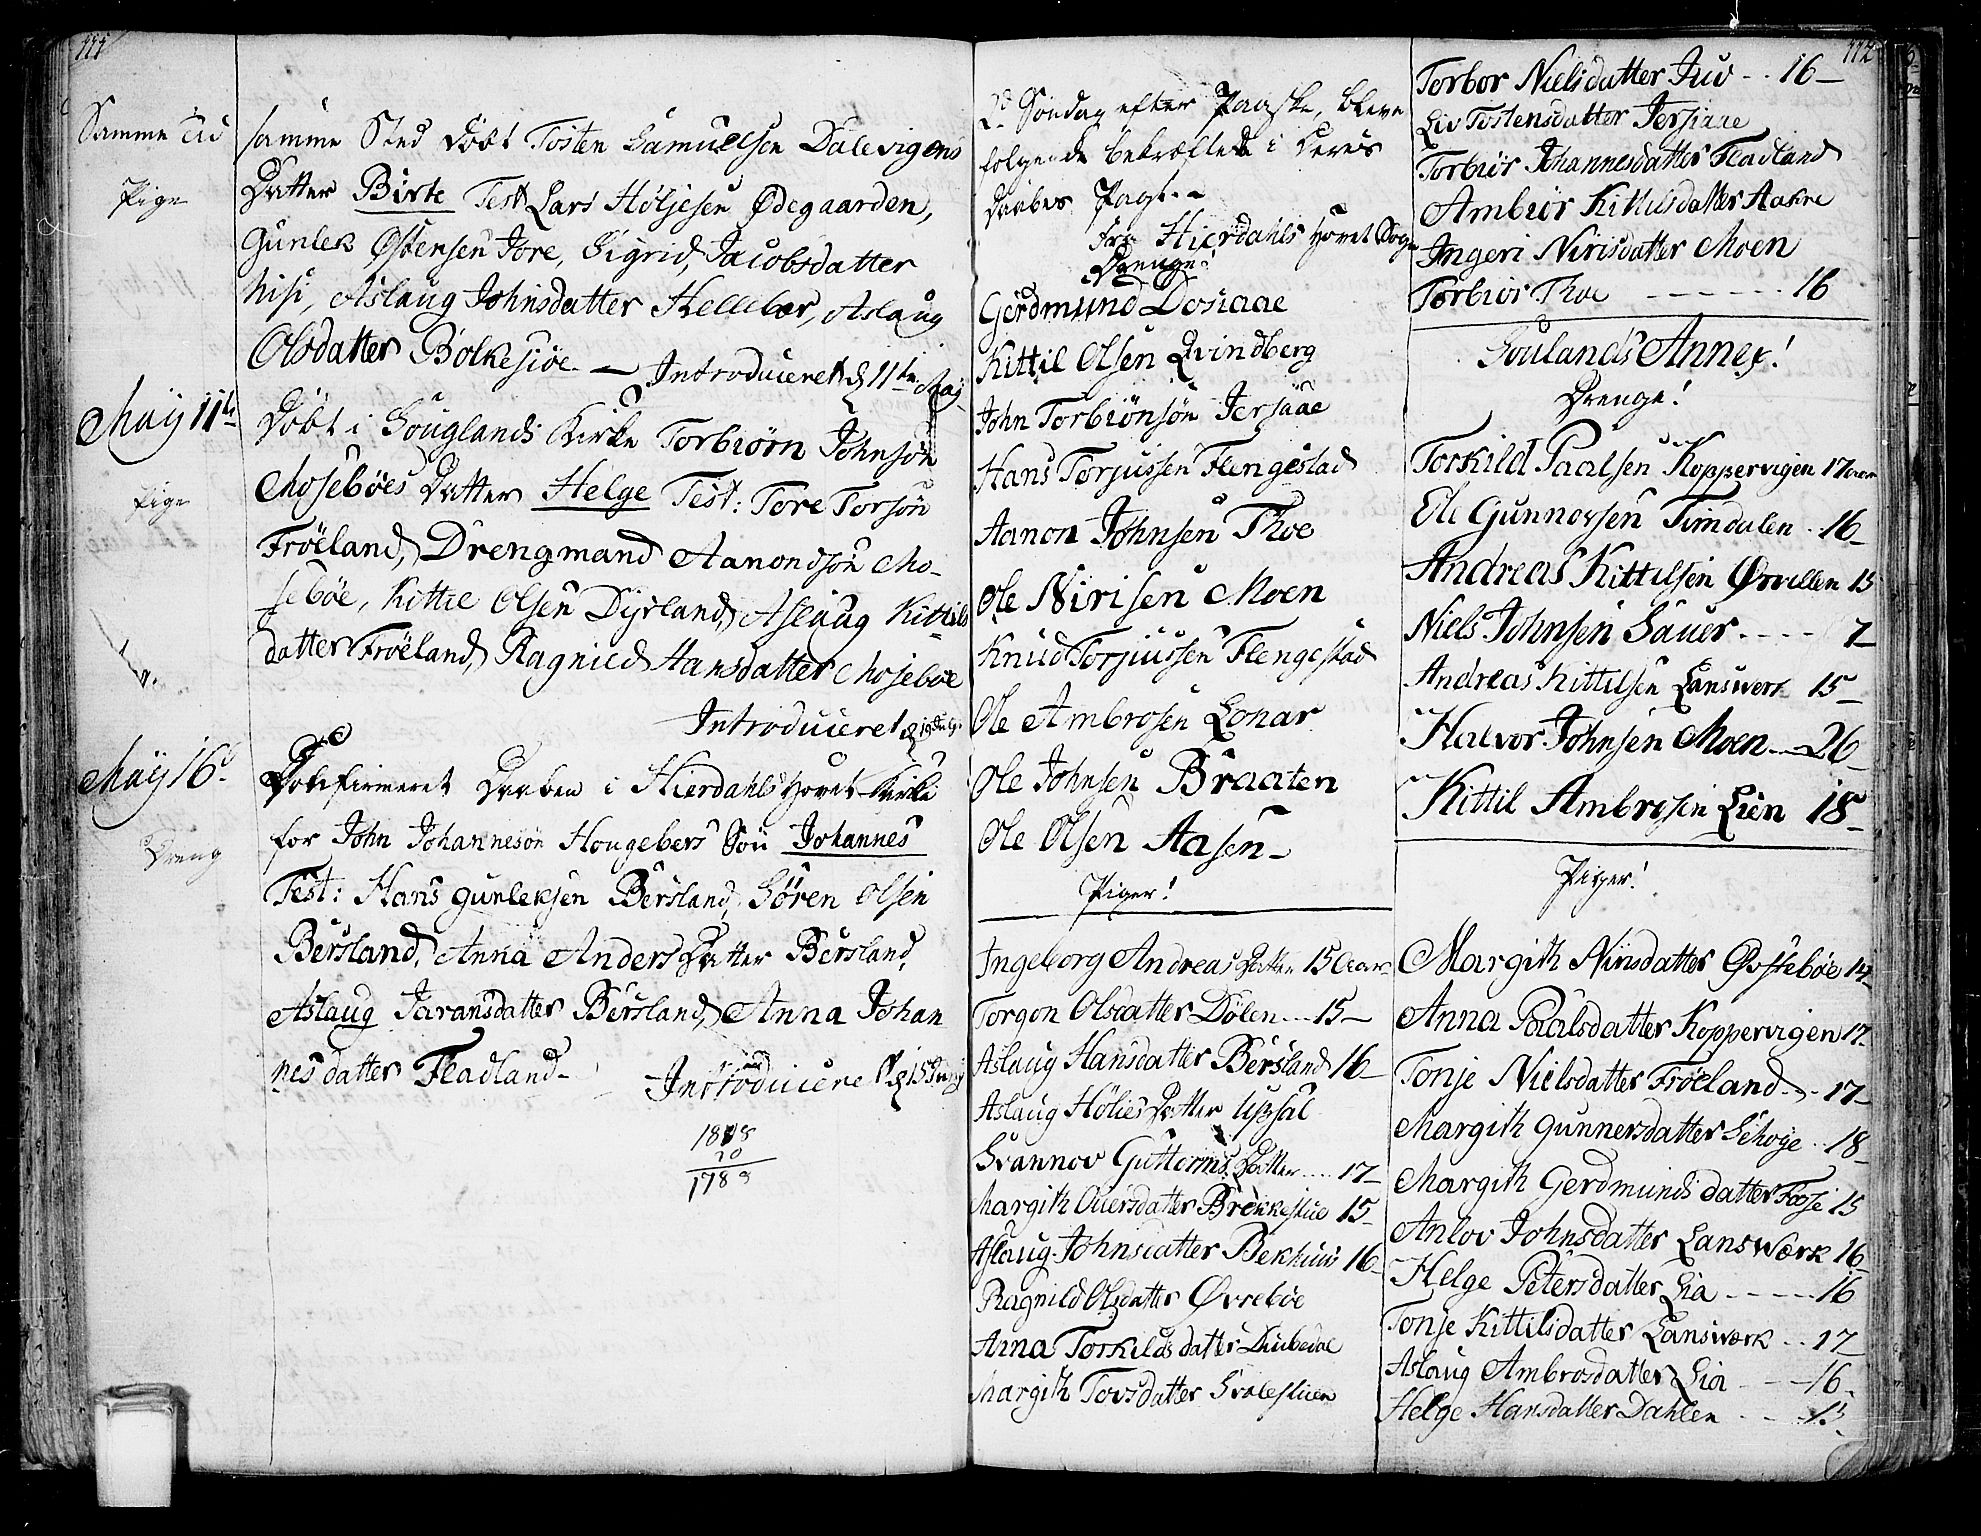 111
Samme Tid
Pige
samme Sted Döbt Tosten Samuelsøn Dalevigens
Datter Birte Test Lars Höljesen Ødegaarden,
Gunlek Østensen Jore, Sigrid Jacobsdatter
Nisi, Aslaug Johnsdatter Hellebær, Aslaug
Olsdatter Bolkesiøe. — Introduceret d 11te Maj
May 11te
Pige
Döbt i Souglands Kirke Torbiørn Johnsøn
Mosebøes Datter Helge Test: Tore Torsøn
Fröeland, Drengmand Aanondsøn Mo-
sebøe, Kittil Olsen Dyrland, Aslaug Kittils
datter Fröeland, Ragnild Hansdatter Mosebøe
Introduceret d 19de
May 16d
Dreng
Confirmeret Daaben i Hierdahls Hovet Kirke
for John Johannesøn Hougebers Søn Johannes
Test: Hans Gunleksen Bersland, Sören Olsen
Bersland, Anna Anders Datter Bersland,
Aslaug Jaransdatter Bersland, Anna Johan
nesdatter Fladland —
Introduceret d 15 Junj
1808
20
1789
112
2d Söndag efter Paaske, bleve
folgende bekræftede i deres
Daabes Pagt. —
fra Hierdahls Hovet Sogn
Drenge!
Gerdmund Dosiaae
Kittil Olsen Qvindberg
John Torbiönsön Jersaae
Hans Torjussen Flengestad
Aanon Johnsen Thoe
Ole Nirisen Moen
Knud Torjussen Flengestad
Ole Ambrosen Lonar
Ole Johnsen Braaten
Ole Olsen Aasen —
Piger!
Ingeborg Andreas Datter 15 Aar
Torgon Olsdatter Dölen ... 15 —
Aslaug Hansdatter Bersland 16 —
Aslaug Hölies Datter
Svannov Guttorms Datter .... 17 —
Margith Ouersdatter Brekkestue 15 —
Aslaug Johnsdatter Bekhuus 16 —
Ragnild Olsdatter Øvrebøe
Anna Torkilds datter Liubedal
Margith Tovsdatter Svalestuen
Torbor Nielsdatter Juv - . 16 —
Liv Tostensdatter Jersiaae
Torbiör Johannesdatter Fladland
Ambiör Kittilsdatter Aakre
Ingeri Nirisdatter Moen
Torbiör Thoe - - - - - - 16
Soulands Annex!
Drenge!
Torkild Paalsen Koppervigen 17 aar
Ole Gunnersen Timdalen . 16 —
Andreas Kittilsen Ørvillen 15
Niels Johnsen Sauer . - - - 7 —
Andreas Kittilsen Lansverk 15 —
Halvor Johnsen Moen — 26 —
Kittil Ambrosen Lien 18 —
Piger!
Margith Nirisdatter Øvstebøe 14 —
Anna Paalsdatter Koppervigen 17 —
Tonje Nielsdatter Fröeland . . 17 —
Margith Gunnersdatter Schoje . . 18 —
Margith Gerdmundsdatter Fosse 15
Anlov Johnsdatter Lansværk 16 —
Helge Petersdatter Lia - - - - - 16
Tonje Kittilsdatter Lansværk . . 17
Aslaug Ambrosdatter Lia - - - 16 —
Helge Hansdatter Dahlen - - - 15